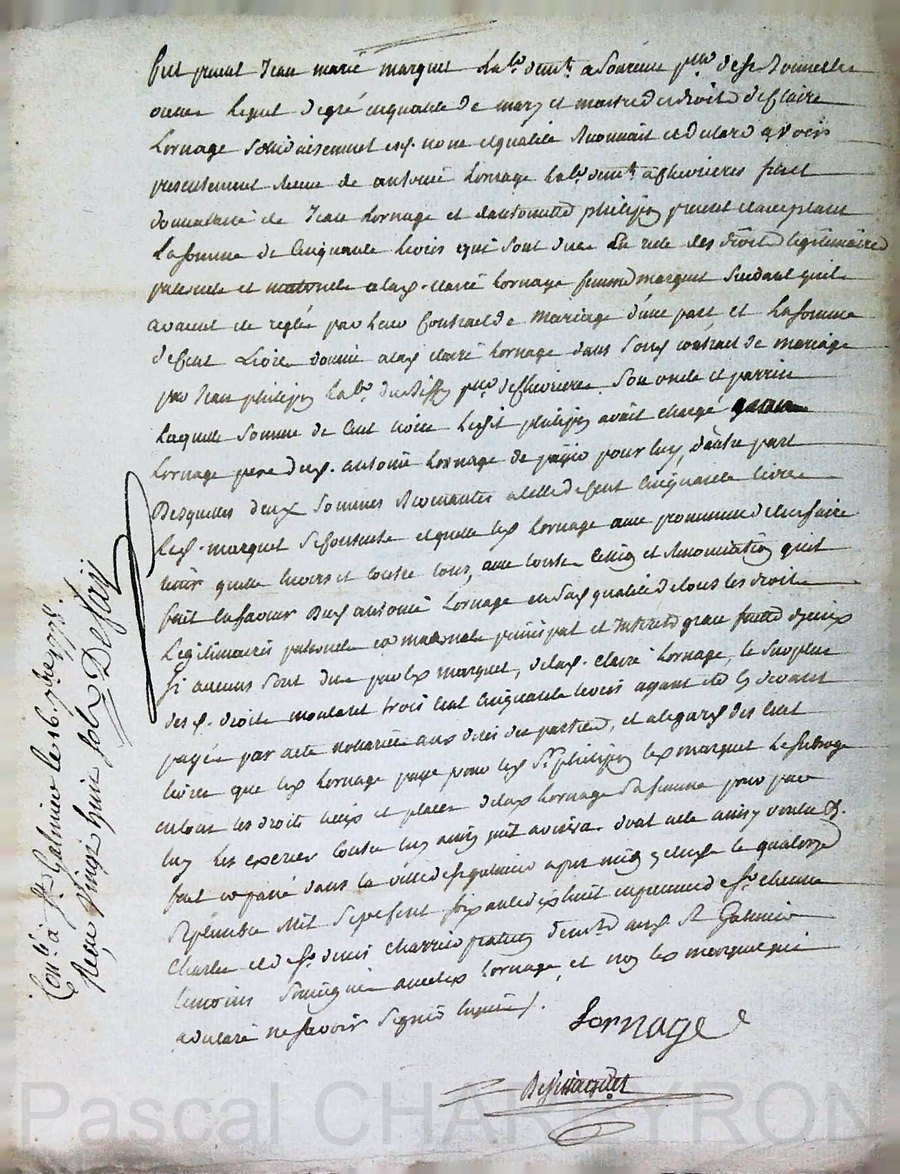 fut present Jean marie marquet lab.r demt. a
lequel degré en qualité de mary et maitre des droits de Claire
Lornage solidairement esd. nom et qualité reconnait et declare avoir
presentement receu de antoine Lornage lab.r demt. a chevrieres fils et
donnataire de Jean Lornage et d'antoinette philipon present et acceptant
la somme de cinquante livres qui sont due du reste des droits legitimaires
paternels et maternels a lad. claire Lornage femme marquet suivant qu'il
avaient été reglé par leur contract de mariage d'une part et la somme
de cent livre donnée a lad. claire Lornage dans son d. contrat de mariage
par Jean philipon lab.r de chevrieres son oncle et parrin
laquelle somme de cent livre led. philipon avait chargé
Lornage pere dud. antoine Lornage de payer pour luy d'autre part
Desquelles deux sommes revenantes a celle de cent cinquante livre
led. marquet se contente et quitte led. Lornage avec promesse de l'en faire
tenir quitte envers et contre tous, avec toute cession et renonciation qu'il
fait en faveur dud. antoine Lornage en sad. qualité de tous les droits
Legitimaires paternels et maternels principal et interets
si aucuns sont due par led. marquet, de lad. claire Lornage, le surplus
desd. droits montant trois cent cinquante livres ayant été cy devant
payée par acte notariée aux dires des parties, et a legard des cent
livres que led. Lornage paye pour led. Sr. philipon led. marquet le subroge
en tous les droits lieux et places de lad. Lornage sa femme pour par
luy les exercer contre luy ainsi qu'il avisera. dont acte ainsy voulu &.
fait et passé dans la ville de st galmier apres midy le quatorze
septembre mil sept cent soixante dix huit en presence de Sr. etienne
Charles et de Sr. denis charrin praticien demt. aud. St Galmier
temoins soussignés avec led. Lornage, et non led. marquet qui
a declaré ne savoir signer
Lornage
Con.lé à St. Galmier le 16. 7bre 1778.
Reçu vingt huit sols Defay
Pascal CHARLYRON